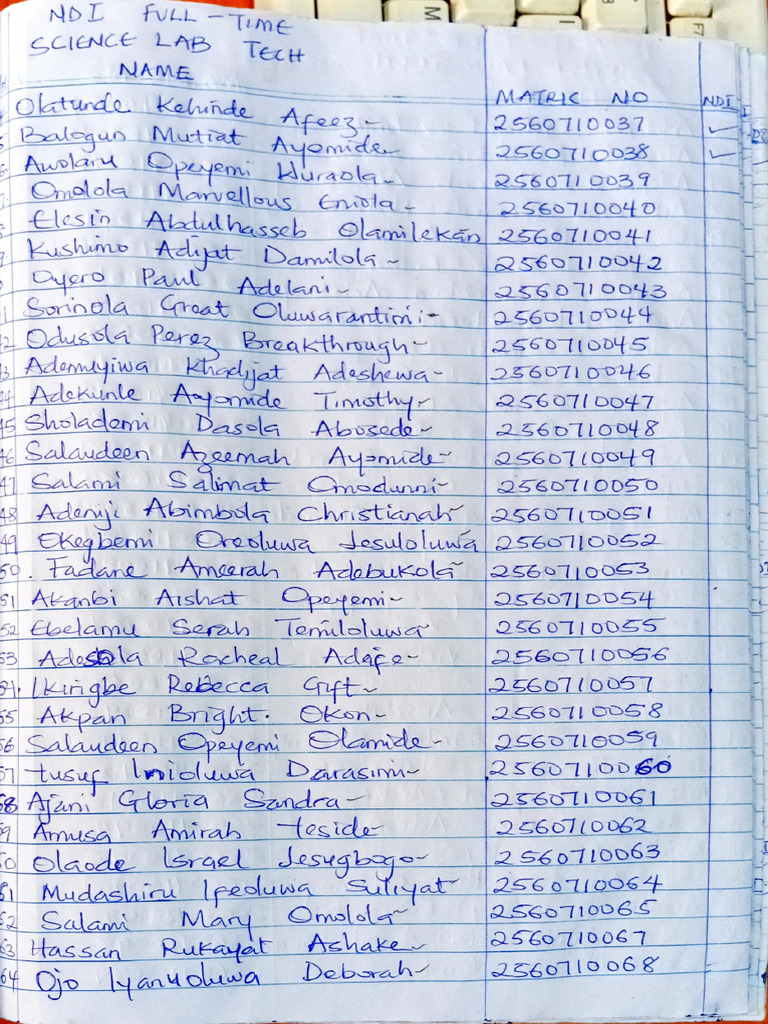 NDI FULL-TIME
SCIENCE LAB TECH
NAME MATRIC NO NDI
Olatunde Kehinde Afeez 2560710037 ✓
Balogun Mutiat Ayomide 2560710038 ✓
Awolaru Opeyemi Wuraola 2560710039
Omolola Marvellous Eniola 2560710040
Elesin Abdulhasseb Olamilekan 2560710041
Kushimo Adijat Damilola 2560710042
Oyero Paul Adelani 2560710043
Sorinola Great Oluwarantimi 2560710044
42 Odusola Perez Breakthrough 2560710045
43 Ademuyiwa Khadijat Adeshewa 2560710046
44 Adekunle Ayomide Timothy 2560710047
45 Sholademi Dasola Abosede 2560710048
46 Salaudeen Azeemah Ayomide 2560710049
47 Salami Salimat Omodunni 2560710050
48 Adeniji Abimbola Christianah 2560710051
49 Ekegbemi Oreoluwa Jesuloluwa 2560710052
50. Fadane Ameerah Adebukola 2560710053
51 Akanbi Aishat Opeyemi 2560710054
52 Ebelamu Serah Temiloluwa 2560710055
53 Adesola Racheal Adafe 2560710056
54. Ikirigbe Rebecca Gift 2560710057
55 Akpan Bright. Okon 2560710058
56 Salaudeen Opeyemi Olamide 2560710059
57 Yusuf Inioluwa Darasimi 2560710060
58 Ajani Gloria Sandra 2560710061
59 Amusa Amirah Yeside 2560710062
60 Olaode Israel Jesugbogo 2560710063
61 Mudashiru Ifeoluwa Suliyat 2560710064
62 Salami Mary Omolola 2560710065
63 Hassan Rukayat Ashake 2560710067
64 Ojo Iyanuoluwa Deborah 2560710068